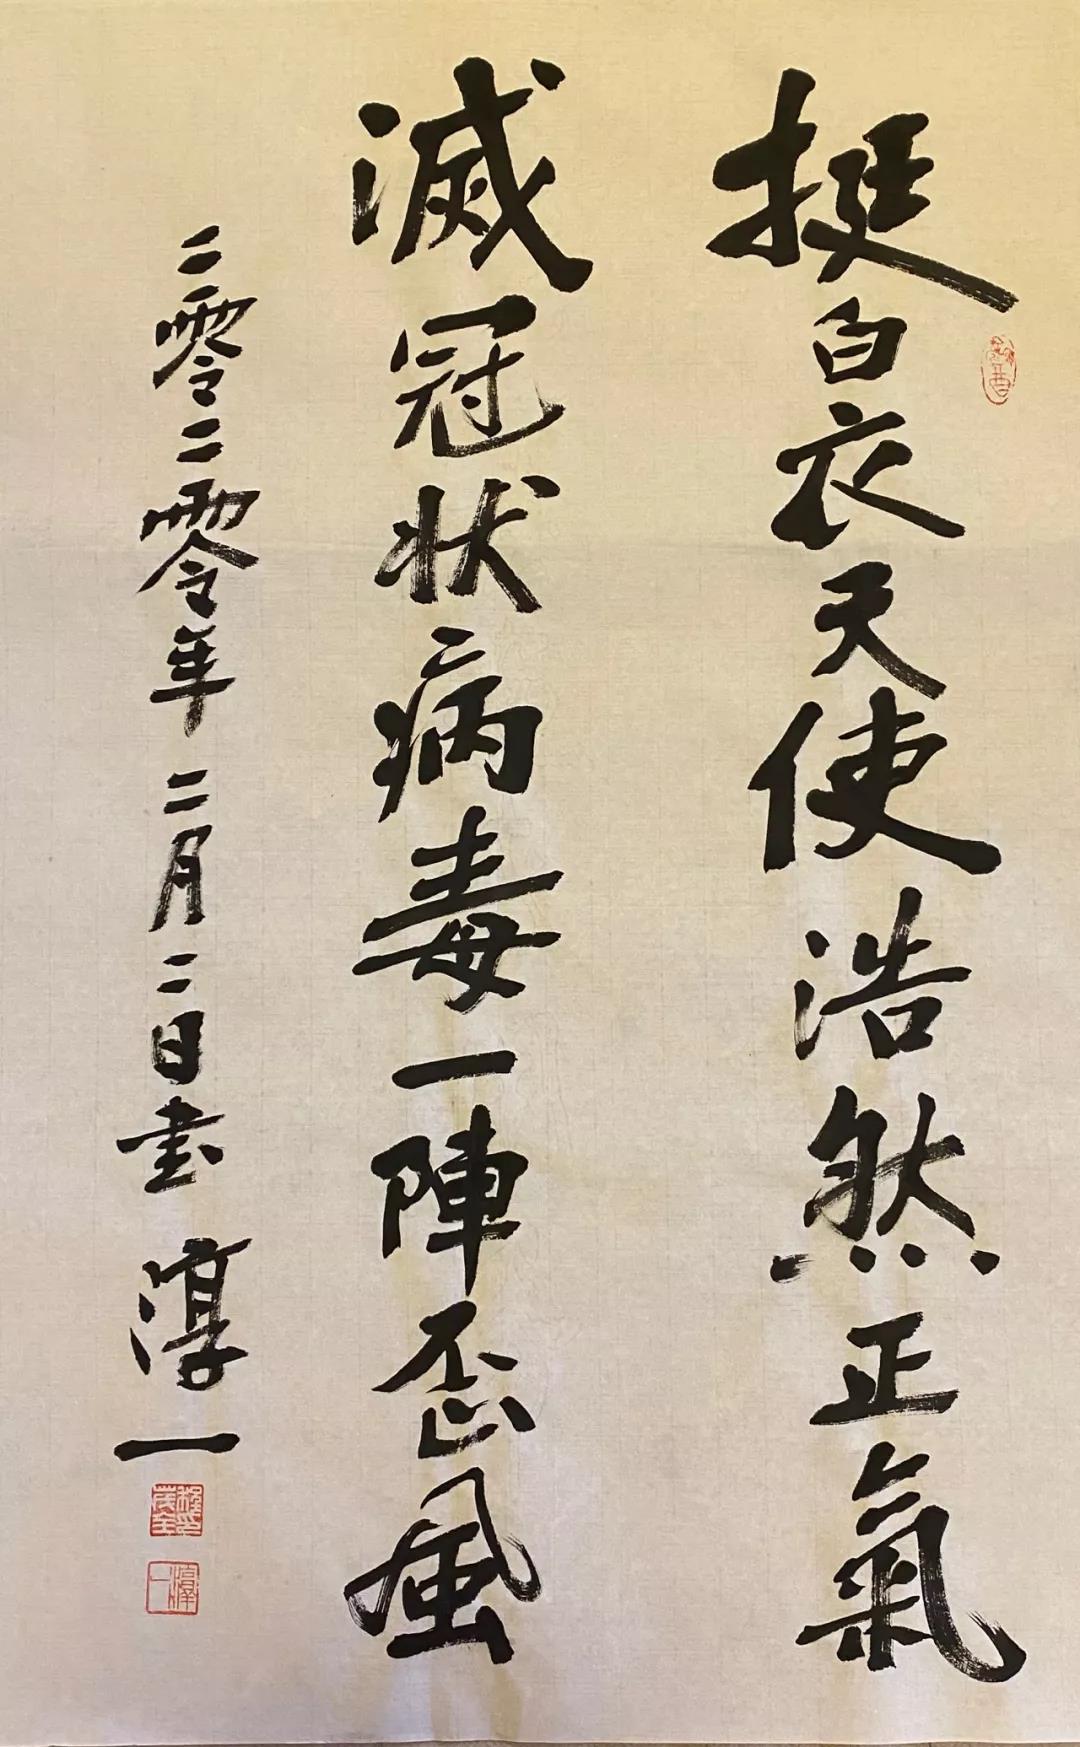 挺白衣天使浩然正氣
滅冠状病毒一陣歪風
二零二零年二月二日書 淳一
淳一